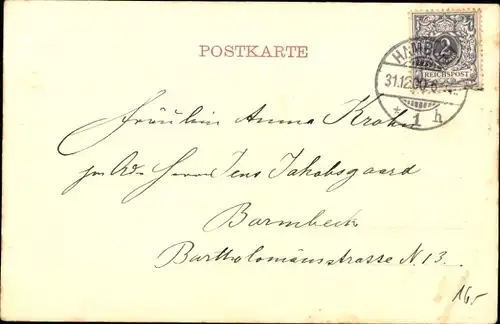 POSTKARTE
HAMBURG
2
REICHSPOST
31.12.00
* 1 h
Fräulein Anna Krohn
pr Adr. Herrn Jens Jakobsgaard
Barmbeck
Bartholomäusstrasse N. 13.
16,-